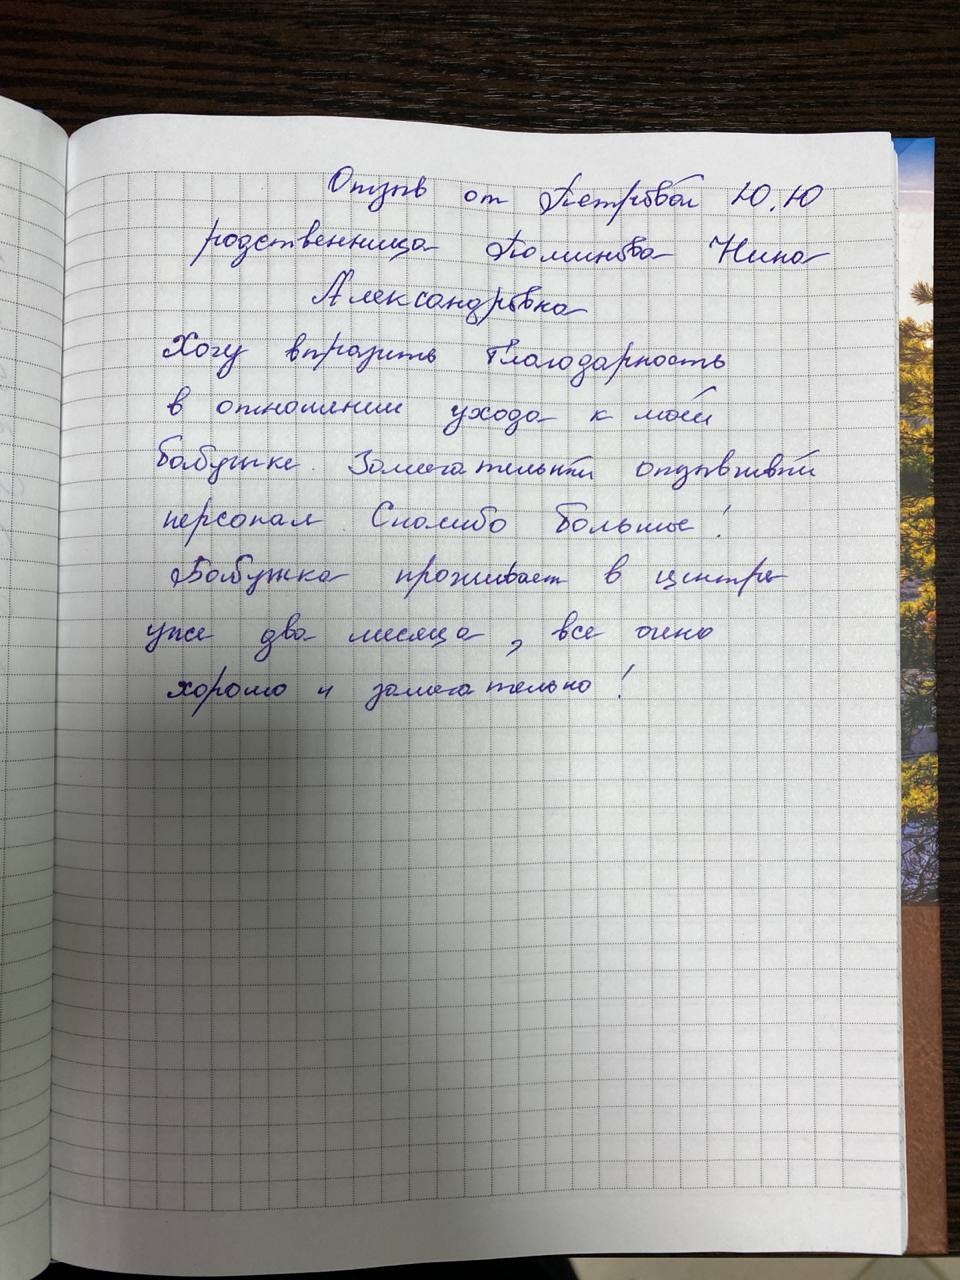 Отзыв от Петровой Ю.Ю
родственница Поминова Нина
Александровна
Хочу выразить благодарность
в отношении ухода к моей
бабушке. Замечательный отзывчивый
персонал. Спасибо большое!
Бабушка проживает в центре
уже два месяца, все очень
хорошо и замечательно!